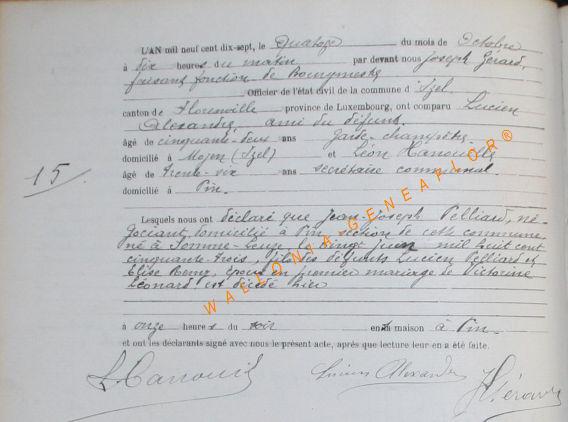 L'AN mil neuf cent dix-sept, le Quatorze du mois de Octobre
à dix heures du matin par devant nous Joseph Gérard,
faisant fonction de Bourgmestre
Officier de l'état civil de la commune d'Izel
canton de Florenville province de Luxembourg, ont comparu Lucien
Alexandre, ami du défunt
âgé de cinquante-deux ans garde-champêtre
domicilié à Moyen (Izel) et Léon Hanouille
âgé de trente-six ans secrétaire communal
domicilié à Pin.
15
Lesquels nous ont déclaré que Jean-Joseph Pelliard, né-
gociant domicilié à Pin, section de cette commune
né à Somme-Leuze, le vingt juin mil huit cent
cinquante-trois, fils des défunts Lucien Pelliard et
Elise époux en premier mariage de Victorine
Léonard est décédé hier
à onze heures du soir en sa maison à Pin.
et ont les déclarants signé avec nous le présent acte, après que lecture leur en a été faite.
L Hanouil Lucien Alexandre J Gérard
WALLONIA-GENEAFLOR®